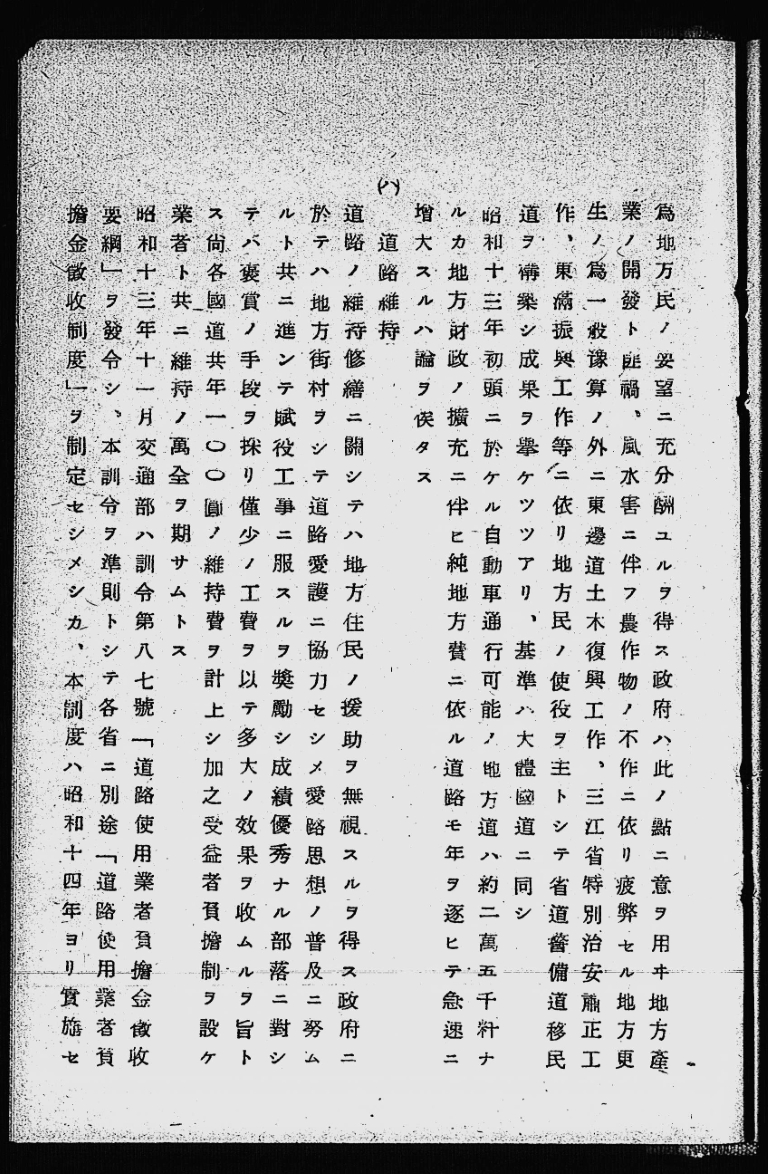 爲地方民ノ要望ニ充分酬ユルヲ得ス政府ハ此ノ點ニ意ヲ用ヰ地方產
業ノ開發ト匪禍、風水害ニ伴フ農作物ノ不作ニ依リ疲弊セル地方更
生ノ爲一般豫算ノ外ニ東邊道土木復興工作、三江省特別治安肅正工
作、東滿振興工作等ニ依リ地方民ノ使役ヲ主トシテ省道警備道移民
道ヲ構築シ成果ヲ擧ケツツアリ、基準ハ大體國道ニ同シ
昭和十三年初頭ニ於ケル自動車通行可能ノ地方道ハ約二萬五千粁ナ
ルカ地方財政ノ擴充ニ伴ヒ純地方費ニ依ル道路モ年ヲ逐ヒテ急速ニ
增大スルハ論ヲ俟タス
(ハ) 道路維持
道路ノ維持修繕ニ關シテハ地方住民ノ援助ヲ無視スルヲ得ス政府ニ
於テハ地方街村ヲシテ道路愛護ニ協力セシメ愛路思想ノ普及ニ努ム
ルト共ニ進ンテ賦役工事ニ服スルヲ奬勵シ成績優秀ナル部落ニ對シ
テハ褒賞ノ手段ヲ採リ僅少ノ工費ヲ以テ多大ノ效果ヲ收ムルヲ旨ト
ス尙各國道共年一〇〇圓ノ維持費ヲ計上シ加之受益者負擔制ヲ設ケ
業者ト共ニ維持ノ萬全ヲ期サムトス
昭和十三年十一月交通部ハ訓令第八七號「道路使用業者負擔金徵收
要綱」ヲ發令シ、本訓令ヲ準則トシテ各省ニ別途「道路使用業者負
擔金徵收制度」ヲ制定セシメシカ、本制度ハ昭和十四年ヨリ實施セ